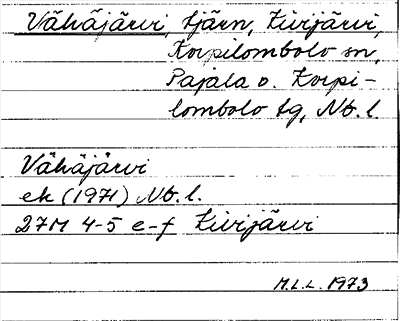 Vähäjärvi, tjärn, Kivijärvi,
Korpilombolo sn,
Pajala o. Korpi-
lombolo tg, Nb. l.
Vähäjärvi
ek (1971) Nb. l.
27M 4-5 e-f Kivijärvi
M.L.L. 1973